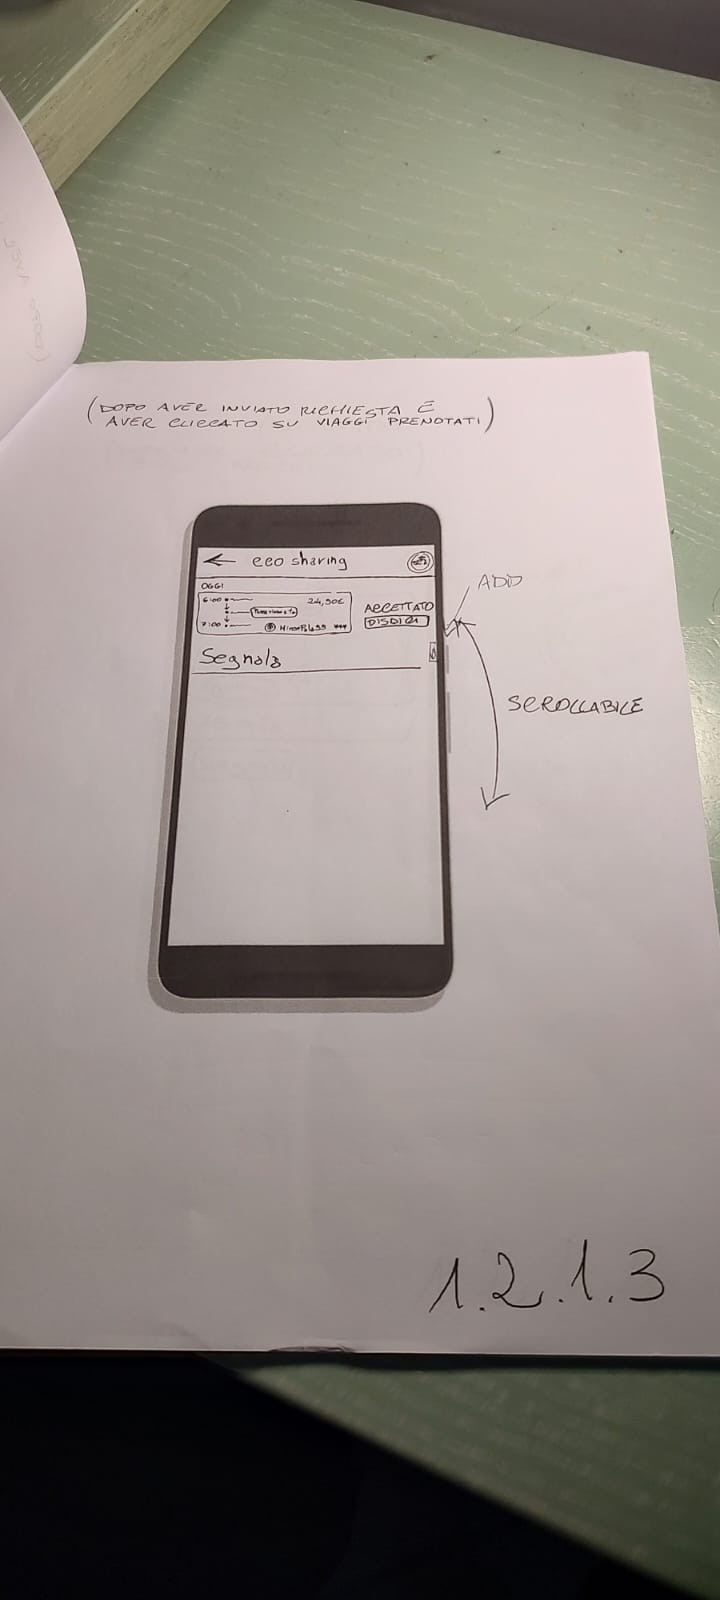 (DOPO AVER INVIATO RICHIESTA E
AVER CLICCATO SU VIAGGI PRENOTATI)
← eco sharing
OGGI
6:00
24,50€
7:00
ACCETTATO
DISDICI
Segnala
ADD
SCROLLABILE
1.2.1.3